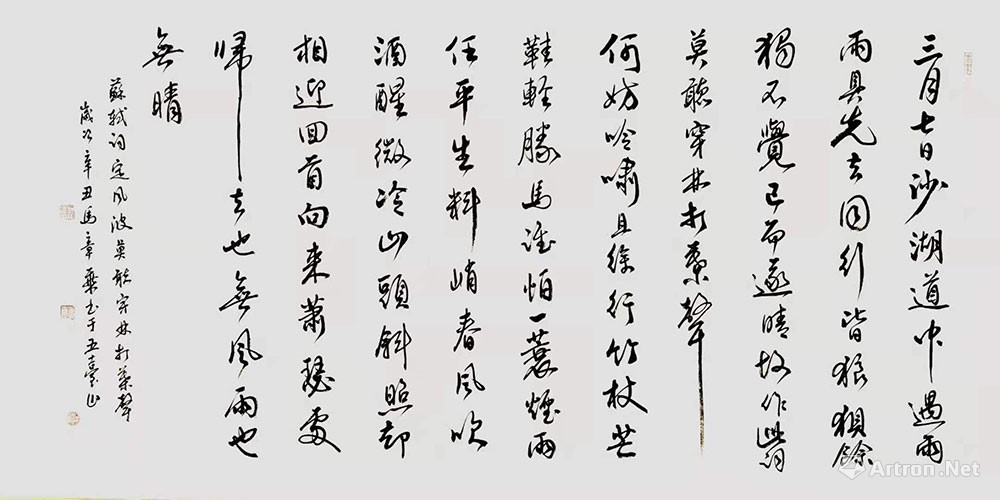 三月七日沙湖道中遇雨
雨具先去同行皆狼狽餘
獨不覺已而遂晴故作此詞
莫聽穿林打葉聲
何妨吟嘯且徐行竹杖芒
鞋輕勝馬誰怕一蓑煙雨
任平生料峭春風吹
酒醒微冷山頭斜照却
相迎回首向來蕭瑟處
歸去也無風雨也
無晴
蘇軾詞定風波莫聽穿林打葉聲
歲次辛丑馬章乘書于五臺山
Artron.Net